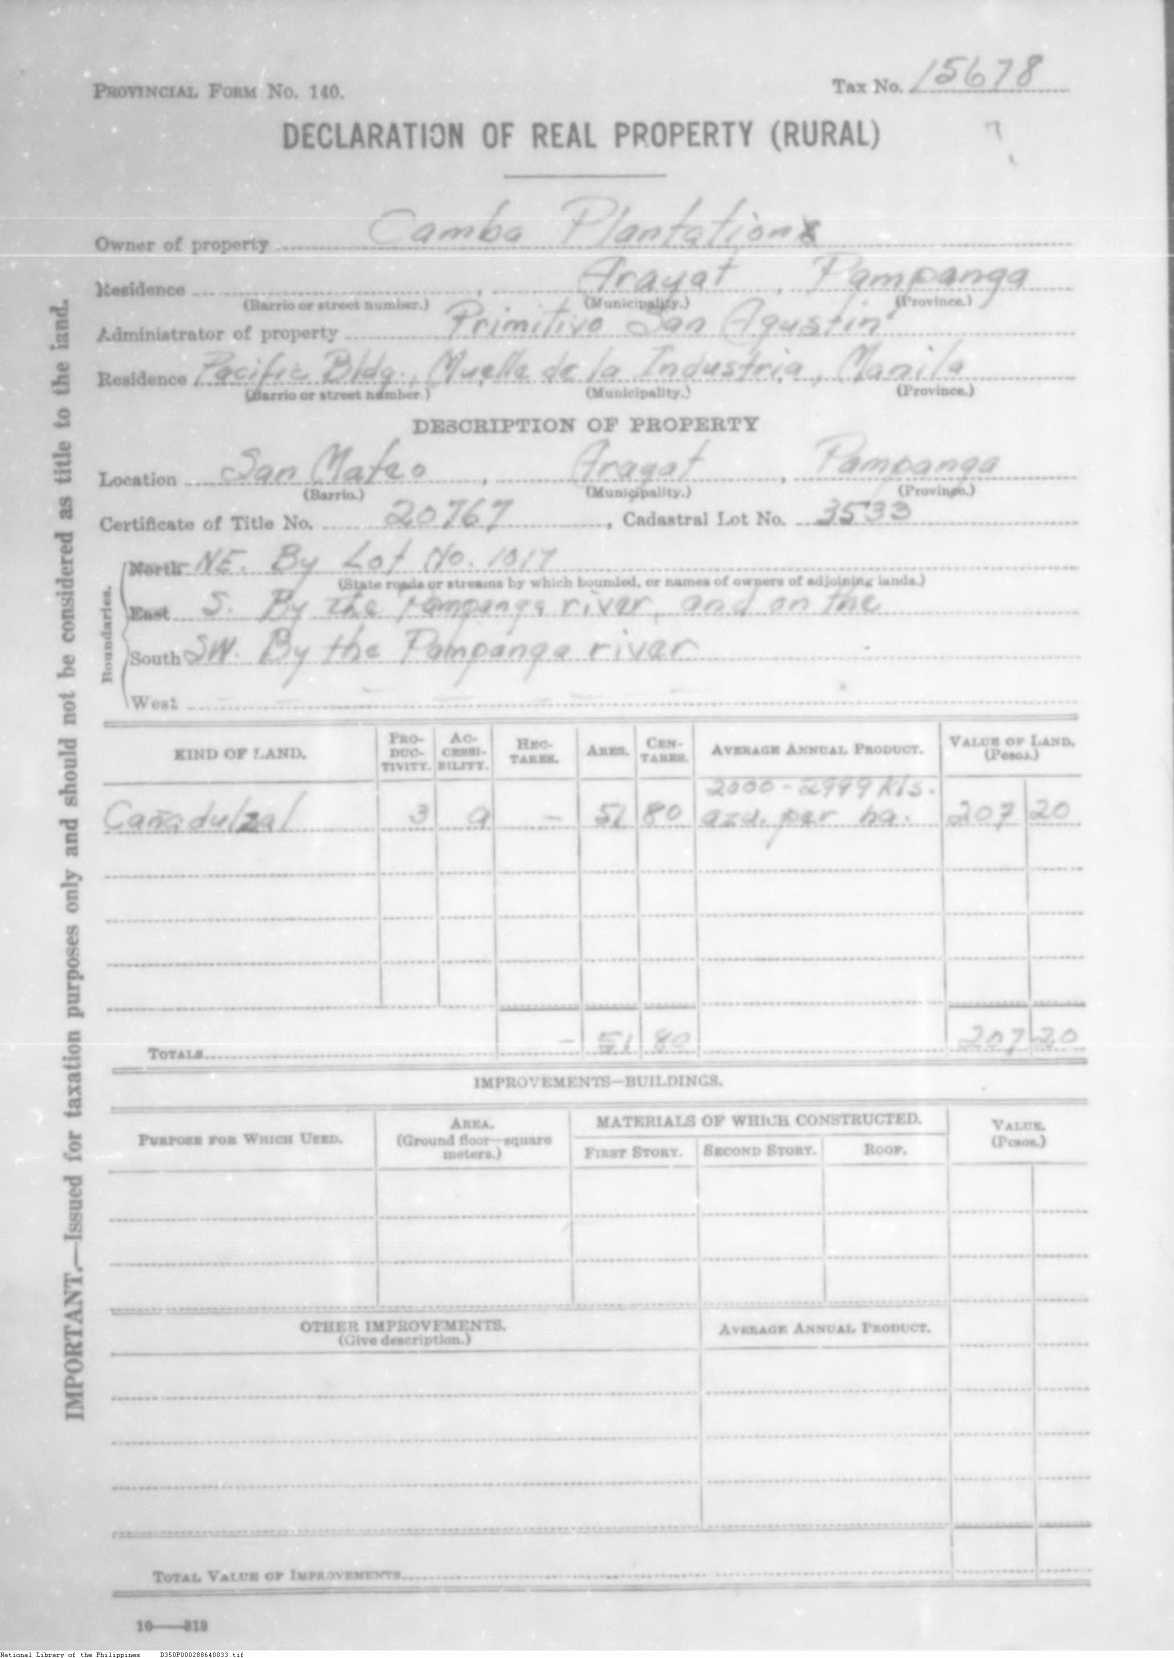 PROVINCIAL FORM No. 140.
Tax No. 15678
DECLARATION OF REAL PROPERTY (RURAL)
Owner of property Camba Plantation
Residence , Arayat , Pampanga
(Barrio or street number.) (Municipality.) (Province.)
Administrator of property Primitivo San Agustin
Residence Pacific Bldg., Muelle de la Industria, Manila
(Barrio or street number.) (Municipality.) (Province.)
DESCRIPTION OF PROPERTY
Location San Mateo , Arayat , Pampanga
(Barrio.) (Municipality.) (Province.)
Certificate of Title No. 20767 , Cadastral Lot No. 3533
Boundaries.
North NE. By Lot No. 1017
(State roads or streams by which bounded, or names of owners of adjoining lands.)
East S. By the Pampanga river, and on the
South SW. By the Pampanga river
West
KIND OF LAND. PRODUCTIVITY. ACCESSIBILITY. HECTARES. ARES. CENTARES. AVERAGE ANNUAL PRODUCT. VALUE OF LAND. (Pesos.)
2000-2999 Kls.
Cañadulzal 3 a - 51 80 azu. per ha. 207 20
TOTALS - 51 80 207 20
IMPROVEMENTS—BUILDINGS.
PURPOSE FOR WHICH USED. AREA. (Ground floor—square meters.) MATERIALS OF WHICH CONSTRUCTED. VALUE. (Pesos.)
FIRST STORY. SECOND STORY. ROOF.
OTHER IMPROVEMENTS. AVERAGE ANNUAL PRODUCT.
(Give description.)
TOTAL VALUE OF IMPROVEMENTS
IMPORTANT.—Issued for taxation purposes only and should not be considered as title to the land.
National Library of the Philippines D350P000288640833.tif